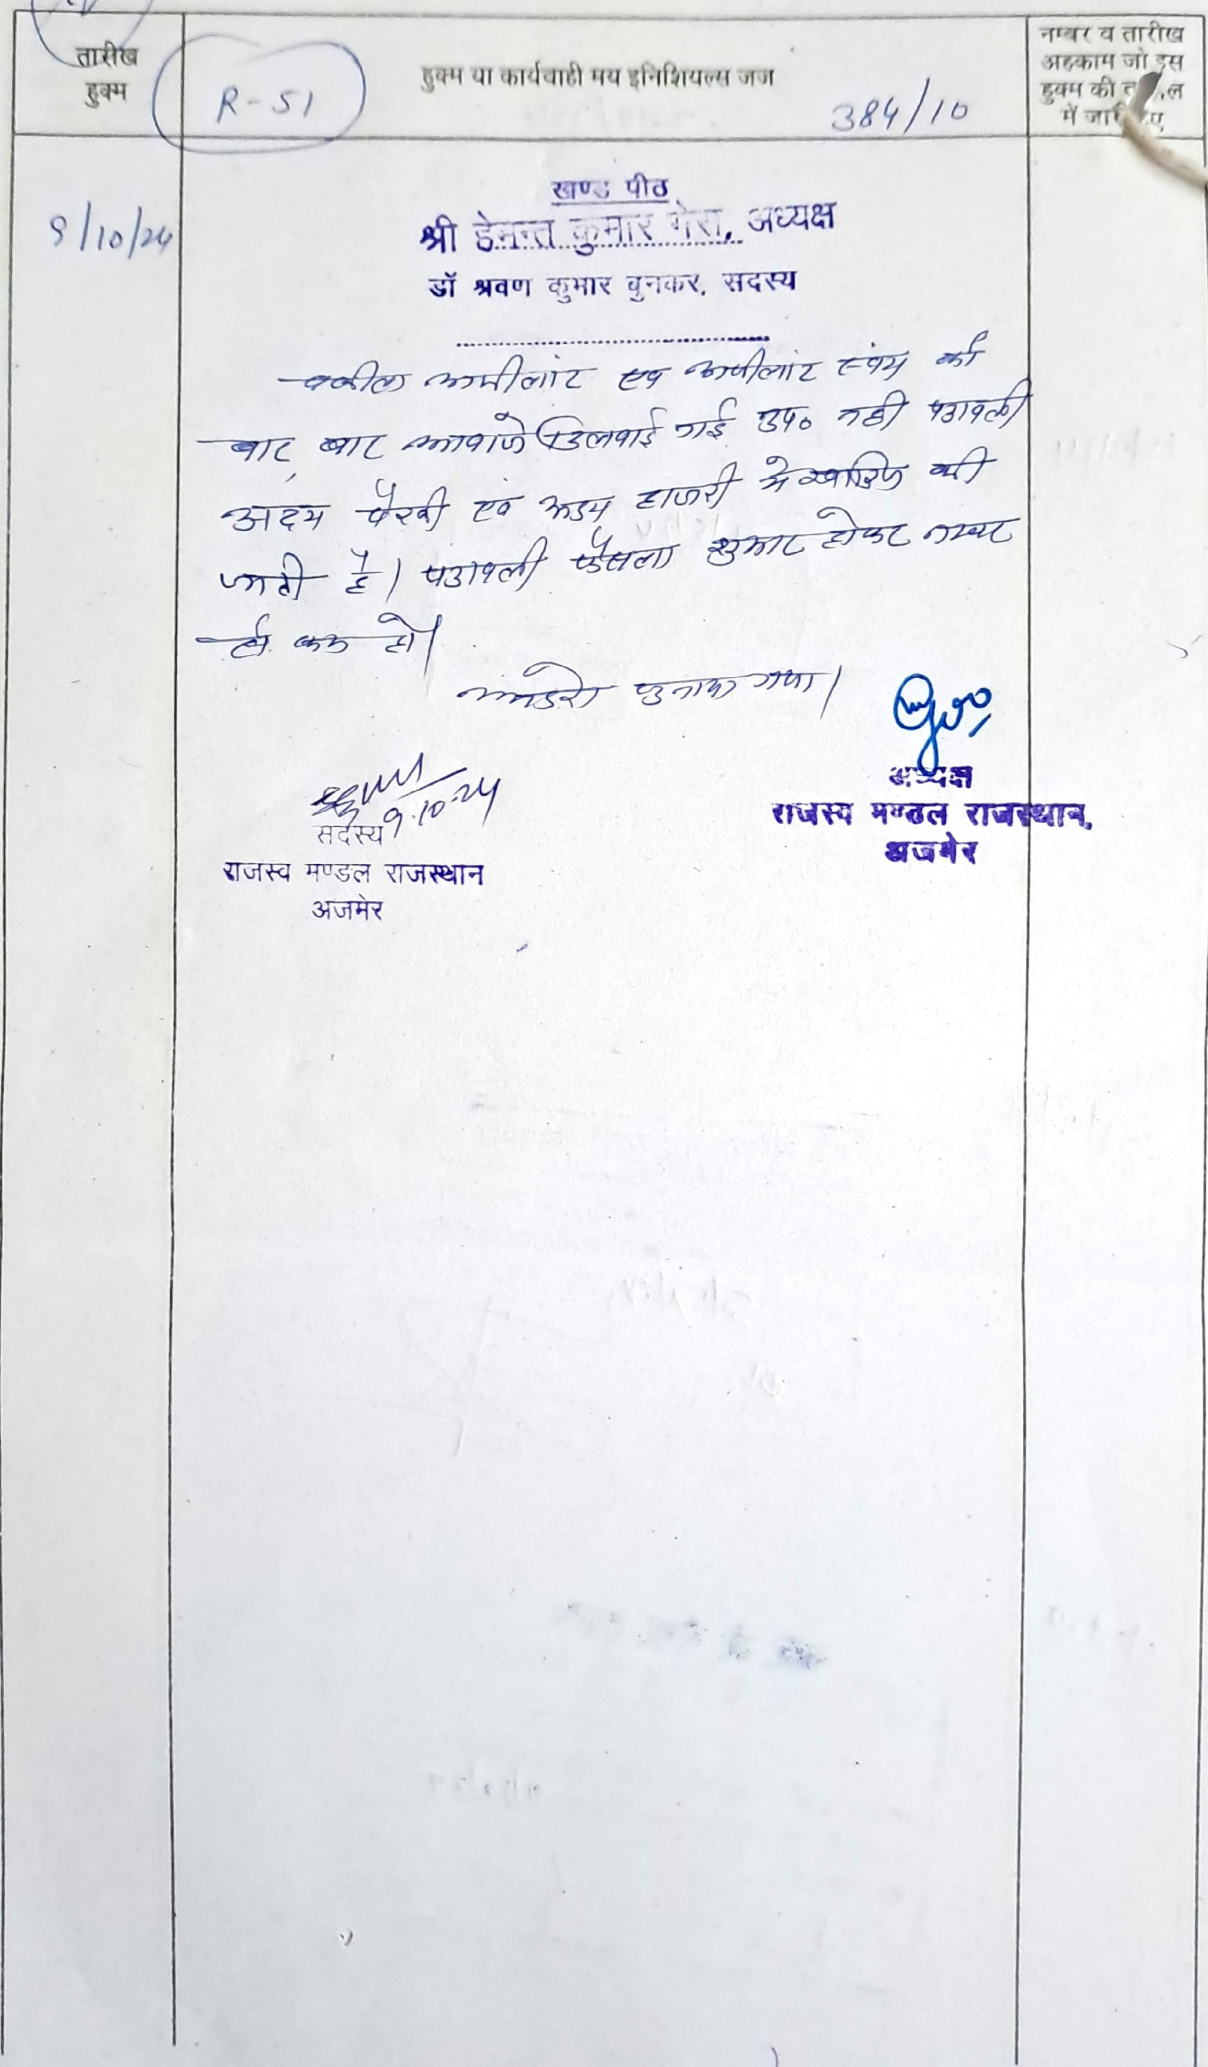 तारीख
हुक्म
R-51
हुक्म या कार्यवाही मय इनिशियल्स जज
384/10
नम्बर व तारीख
अहकाम जो इस
हुक्म की
में जारी
9/10/24
खण्ड पीठ
श्री हेमन्त कुमार गेरा, अध्यक्ष
डॉ श्रवण कुमार बुनकर, सदस्य
वकील अपीलांट एवं अपीलांट स्वंय को
बार बार आवाजे दिलवाई गई उप० नही पत्रावली
अदम पैरवी एवं अदम हाजरी मे खारिज की
जाती है। पत्रावली फैसला शुमार होकर नम्बर
से कम हो।
आदेश सुनाया गया।
9.10.24
सदस्य
राजस्व मण्डल राजस्थान
अजमेर
अध्यक्ष
राजस्व मण्डल राजस्थान,
अजमेर